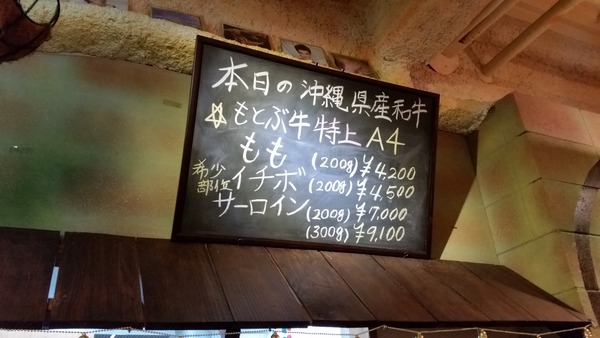 本日の沖縄県産和牛
☆もとぶ牛 特上 A4
もも (200g) ¥4,200
希少部位 イチボ (200g) ¥4,500
サーロイン (200g) ¥7,000
(300g) ¥9,100